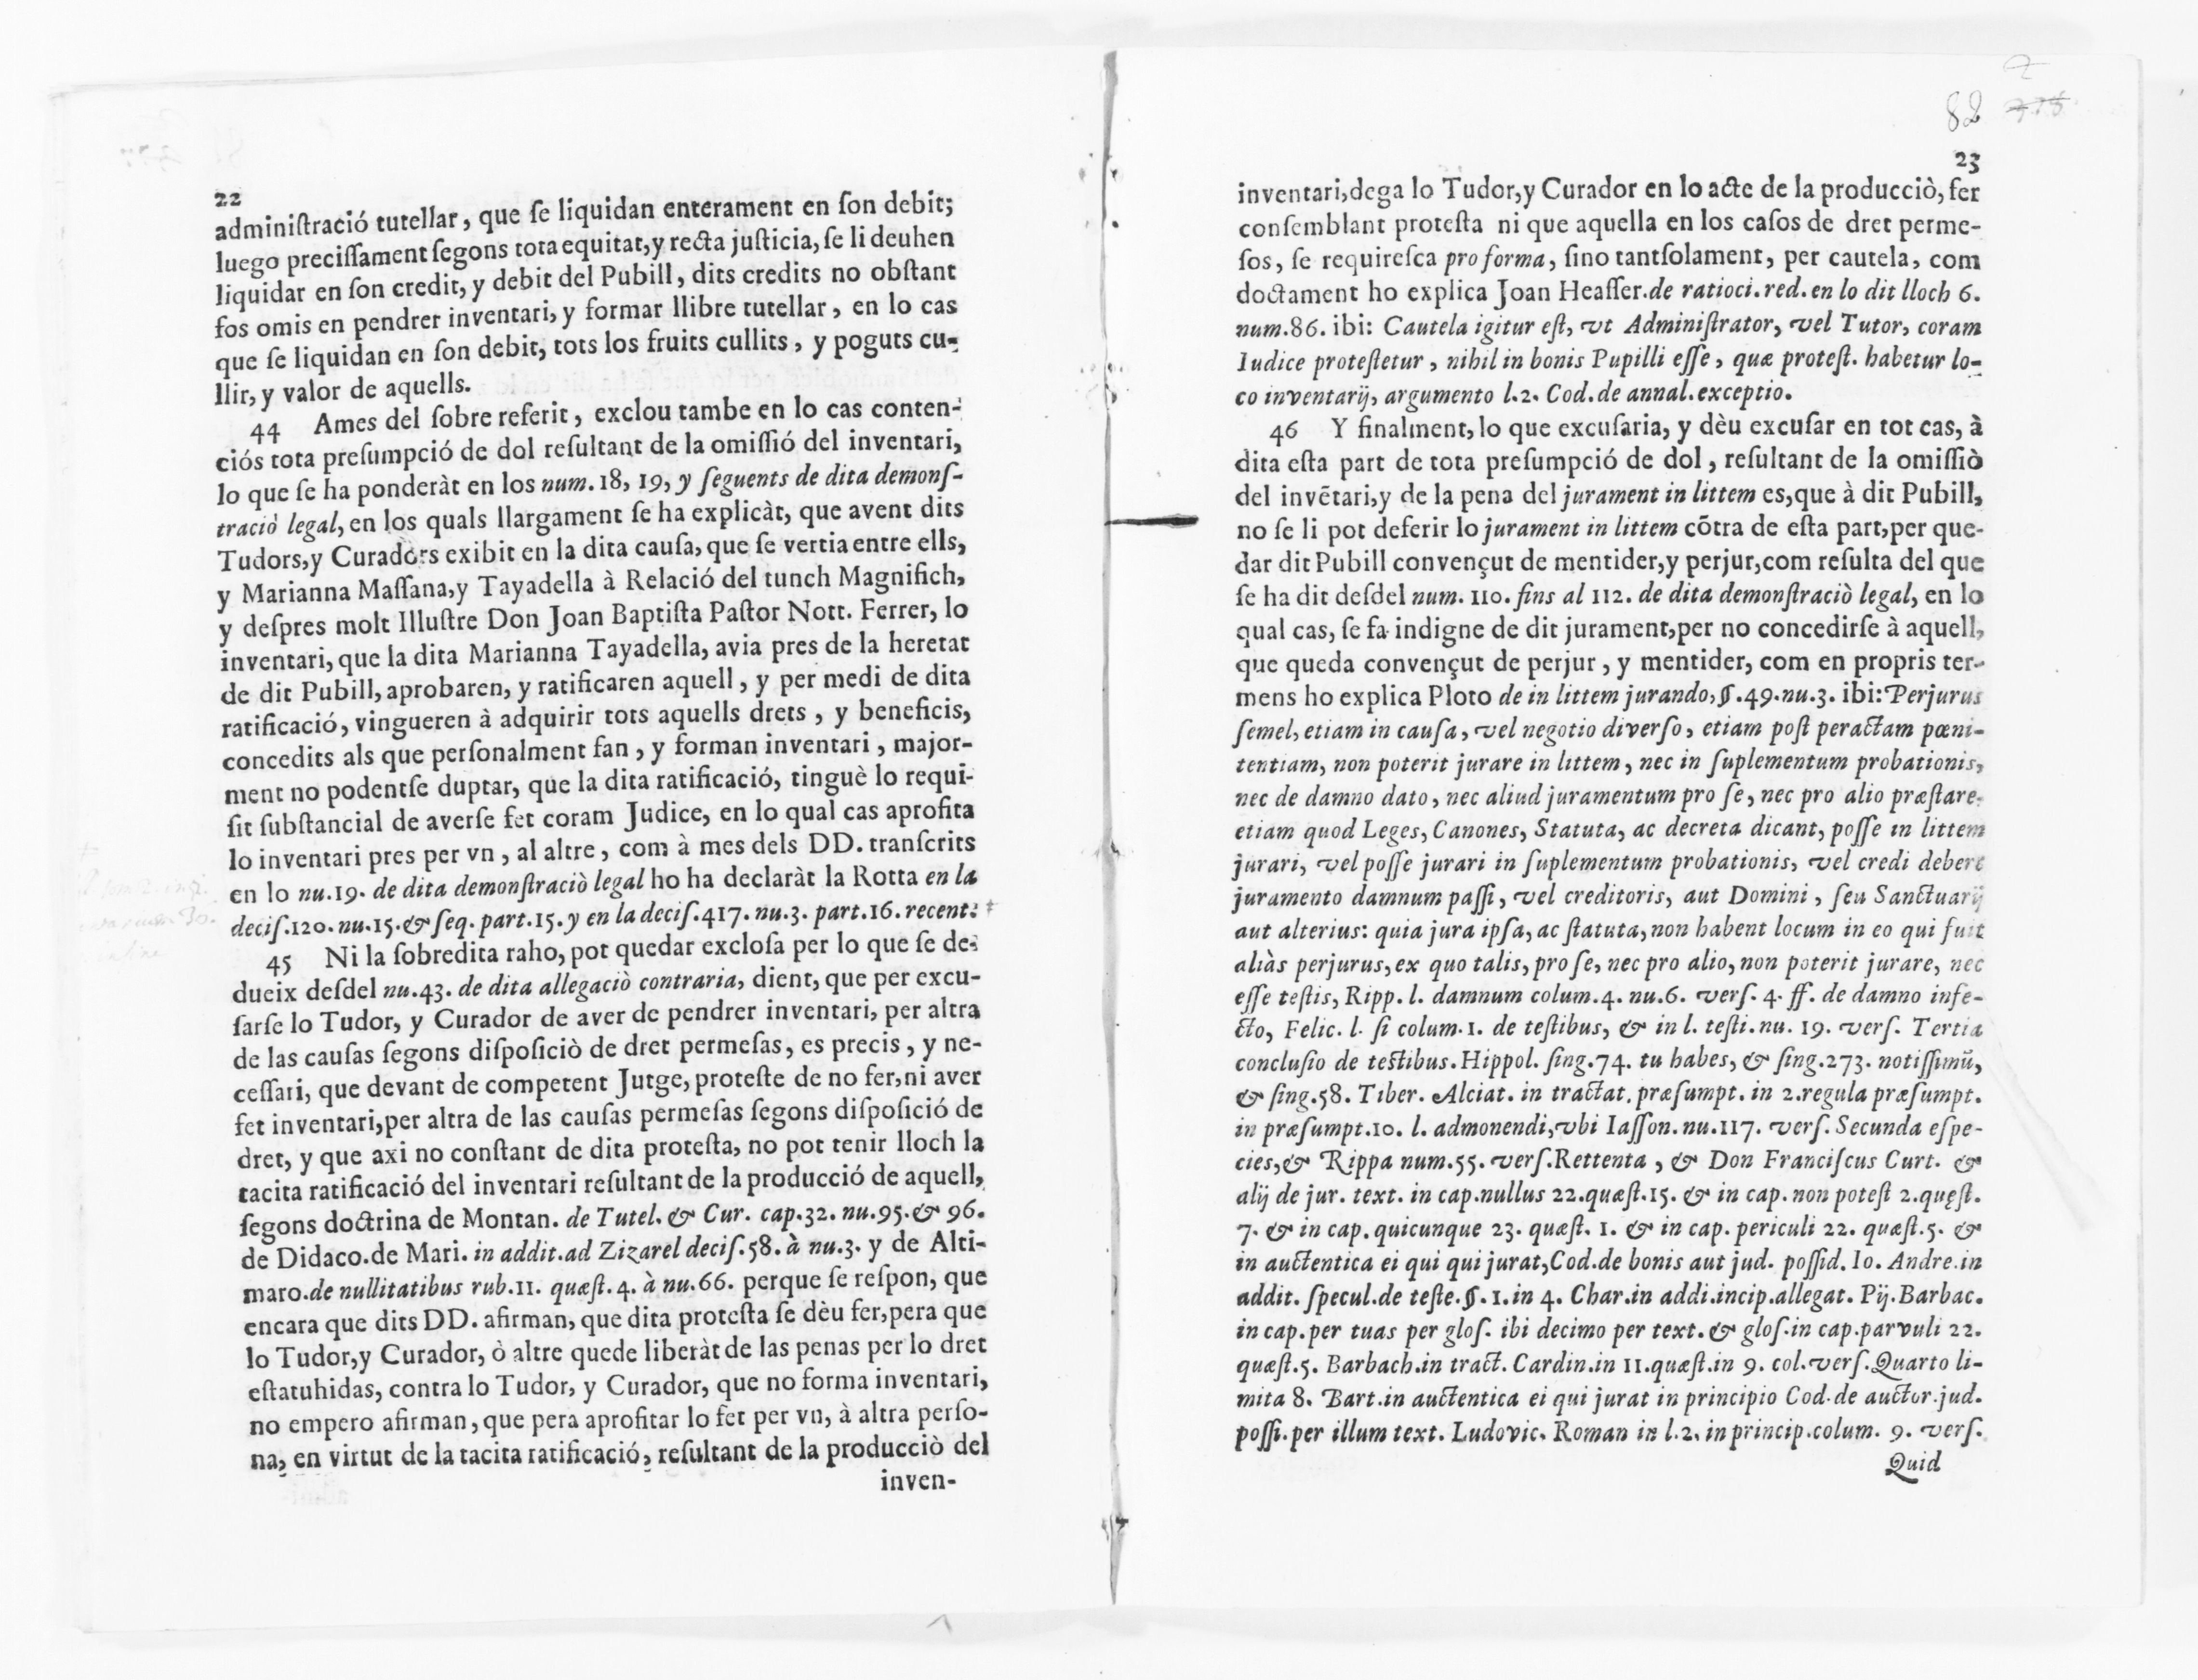 22
administració tutellar, que ſe liquidan enterament en ſon debit;
luego preciſſament ſegons tota equitat, y recta juſticia, ſe li deuhen
liquidar en ſon credit, y debit del Pubill, dits credits no obſtant
fos omis en pendrer inventari, y formar llibre tutellar, en lo cas
que ſe liquidan en ſon debit, tots los fruits cullits, y poguts cu-
llir, y valor de aquells.
44 Ames del ſobre referit, exclou tambe en lo cas conten-
ciós tota preſumpció de dol reſultant de la omiſſió del inventari,
lo que ſe ha ponderàt en los num. 18, 19, y ſeguents de dita demonſ-
traciò legal, en los quals llargament ſe ha explicàt, que avent dits
Tudors, y Curadors exibit en la dita cauſa, que ſe vertia entre ells,
y Marianna Maſſana, y Tayadella à Relació del tunch Magnifich,
y deſpres molt Illuſtre Don Joan Baptiſta Paſtor Nott. Ferrer, lo
inventari, que la dita Marianna Tayadella, avia pres de la heretat
de dit Pubill, aprobaren, y ratificaren aquell, y per medi de dita
ratificació, vingueren à adquirir tots aquells drets, y beneficis,
concedits als que perſonalment fan, y forman inventari, major-
ment no podentſe duptar, que la dita ratificació, tinguè lo requi-
ſit ſubſtancial de averſe fet coram Judice, en lo qual cas aprofita
lo inventari pres per vn, al altre, com à mes dels DD. tranſcrits
en lo nu.19. de dita demonſtraciò legal ho ha declaràt la Rotta en la
deciſ.120. nu.15. & ſeq. part.15. y en la deciſ.417. nu.3. part.16. recent.
45 Ni la ſobredita raho, pot quedar excloſa per lo que ſe de-
dueix deſdel nu.43. de dita allegaciò contraria, dient, que per excu-
ſarſe lo Tudor, y Curador de aver de pendrer inventari, per altra
de las cauſas ſegons diſpoſiciò de dret permeſas, es precis, y ne-
ceſſari, que devant de competent Jutge, proteſte de no fer, ni aver
fet inventari, per altra de las cauſas permeſas ſegons diſpoſició de
dret, y que axi no conſtant de dita proteſta, no pot tenir lloch la
tacita ratificació del inventari reſultant de la producció de aquell,
ſegons doctrina de Montan. de Tutel. & Cur. cap.32. nu.95. & 96.
de Didaco.de Mari. in addit.ad Zizarel deciſ.58. à nu.3. y de Alti-
maro.de nullitatibus rub.11. quæſt.4. à nu.66. perque ſe reſpon, que
encara que dits DD. afirman, que dita proteſta ſe dèu fer, pera que
lo Tudor, y Curador, ò altre quede liberàt de las penas per lo dret
eſtatuhidas, contra lo Tudor, y Curador, que no forma inventari,
no empero afirman, que pera aprofitar lo fet per vn, à altra perſo-
na, en virtut de la tacita ratificació, reſultant de la producciò del
inven-
82
23
inventari, dega lo Tudor, y Curador en lo acte de la producciò, fer
conſemblant proteſta ni que aquella en los caſos de dret perme-
ſos, ſe requireſca pro forma, ſino tantſolament, per cautela, com
doctament ho explica Joan Heaſſer.de ratioci.red.en lo dit lloch 6.
num.86. ibi: Cautela igitur eſt, vt Adminiſtrator, vel Tutor, coram
Iudice proteſtetur, nihil in bonis Pupilli eſſe, quæ proteſt. habetur lo-
co inventarij, argumento l.2. Cod.de annal.exceptio.
46 Y finalment, lo que excuſaria, y dèu excuſar en tot cas, à
dita eſta part de tota preſumpció de dol, reſultant de la omiſſiò
del invẽtari, y de la pena del jurament in littem es, que à dit Pubill,
no ſe li pot deferir lo jurament in littem cõtra de eſta part, per que-
dar dit Pubill convençut de mentider, y perjur, com reſulta del que
ſe ha dit deſdel num. 110. fins al 112. de dita demonſtraciò legal, en lo
qual cas, ſe fa indigne de dit jurament, per no concedirſe à aquell,
que queda convençut de perjur, y mentider, com en propris ter-
mens ho explica Ploto de in littem jurando, §.49.nu.3. ibi: Perjurus
ſemel, etiam in cauſa, vel negotio diverſo, etiam poſt peractam pœni-
tentiam, non poterit jurare in littem, nec in ſuplementum probationis,
nec de damno dato, nec aliud juramentum pro ſe, nec pro alio præſtare.
etiam quod Leges, Canones, Statuta, ac decreta dicant, poſſe in littem
jurari, vel poſſe jurari in ſuplementum probationis, vel credi debere
juramento damnum paſſi, vel creditoris, aut Domini, ſeu Sanctuarij
aut alterius: quia jura ipſa, ac ſtatuta, non habent locum in eo qui fuit
aliàs perjurus, ex quo talis, pro ſe, nec pro alio, non poterit jurare, nec
eſſe teſtis, Ripp. l. damnum colum.4. nu.6. verſ. 4. ff. de damno infe-
cto, Felic. l. ſi colum.1. de teſtibus, & in l. teſti.nu. 19. verſ. Tertia
concluſio de teſtibus. Hippol. ſing.74. tu habes, & ſing.273. notiſſimũ,
& ſing.58. Tiber. Alciat. in tractat. præſumpt. in 2.regula præſumpt.
in præſumpt.10. l. admonendi, vbi Iaſſon. nu.117. verſ. Secunda eſpe-
cies, & Rippa num.55. verſ.Rettenta, & Don Franciſcus Curt. &
alij de jur. text. in cap.nullus 22.quæſt.15. & in cap. non poteſt 2.quęſt.
7. & in cap. quicunque 23. quæſt. 1. & in cap. periculi 22. quæſt.5. &
in auctentica ei qui qui jurat, Cod.de bonis aut jud. poſſid. Io. Andre.in
addit. ſpecul.de teſte.§. 1.in 4. Char.in addi.incip.allegat. Pij.Barbac.
in cap.per tuas per gloſ. ibi decimo per text. & gloſ.in cap.parvuli 22.
quæſt.5. Barbach.in tract. Cardin.in 11.quæſt.in 9. col.verſ.Quarto li-
mita 8. Bart.in auctentica ei qui jurat in principio Cod.de auctor.jud.
poſſi.per illum text. Ludovic. Roman in l.2. in princip.colum. 9. verſ.
Quid